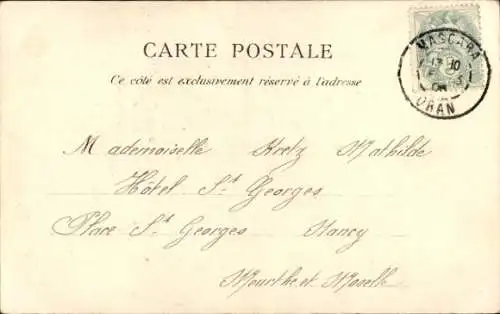 CARTE POSTALE
Ce côté est exclusivement réservé à l'adresse
MASCARA
ORAN
Mademoiselle Kretz Mathilde
Hôtel St Georges
Place St Georges Nancy
Meurthe et Moselle